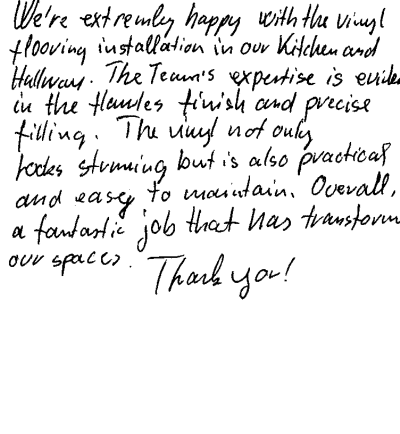 We're extremly happy with the vinyl
flooring installation in our Kitchen and
Hallway. The Team's expertise is eviden
in the flawles finish and precise
filling. The vinyl not only
looks stunning but is also practical
and easy to maintain. Overall,
a fantastic job that has transform
our spaces.
Thank you!